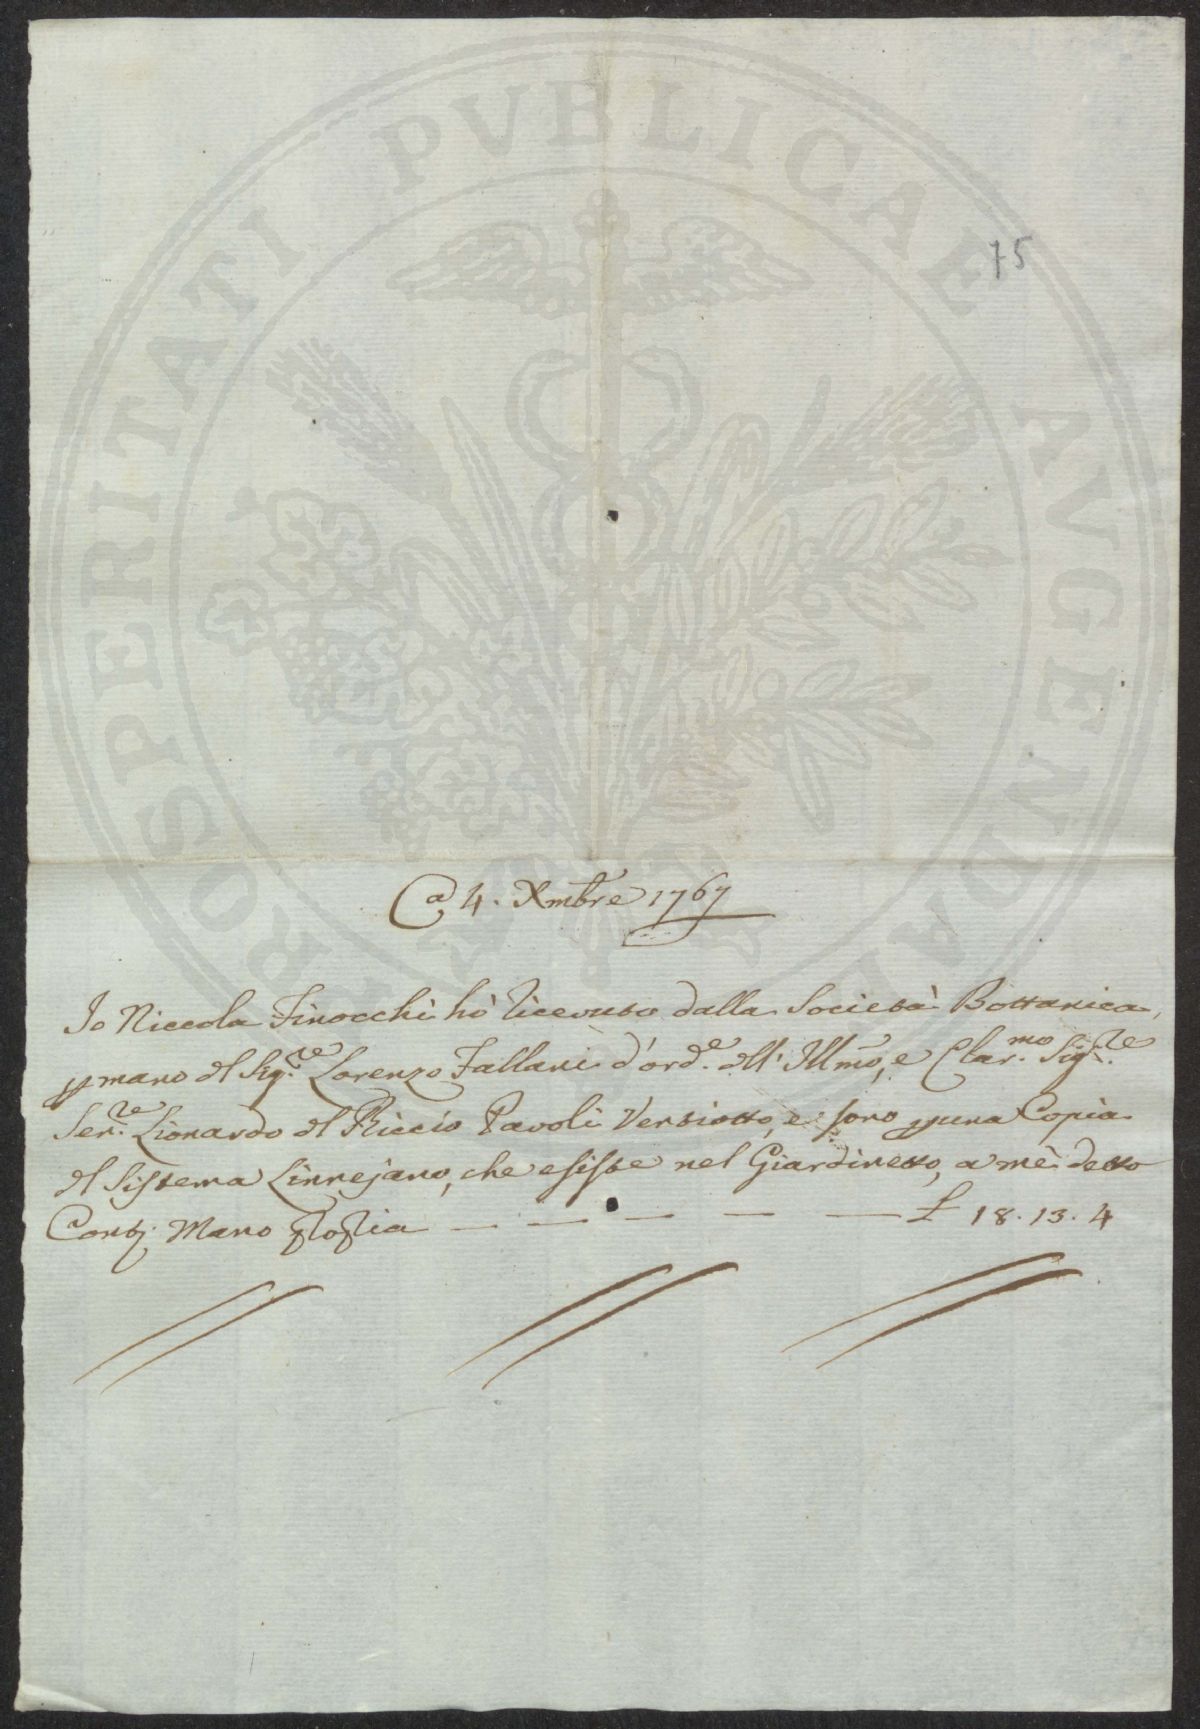 PROSPERITATI PVBLICAE AVGENDAE
75
A 4. Xmbre 1767
Io Niccola Finocchi hò riceuuto dalla Società Bottanica,
p mano del Sig.re Lorenzo Fallani d'ord.e dell' Illmo, e Clar.mo Sig.re
Sen.re Lionardo del Riccio Pavoli Ventiotto, e sono p una Copia
del Sistema Linnejano, che esiste nel Giardinetto, a mè detto
Cont.i Mano ppia — — — — — £ 18. 13. 4